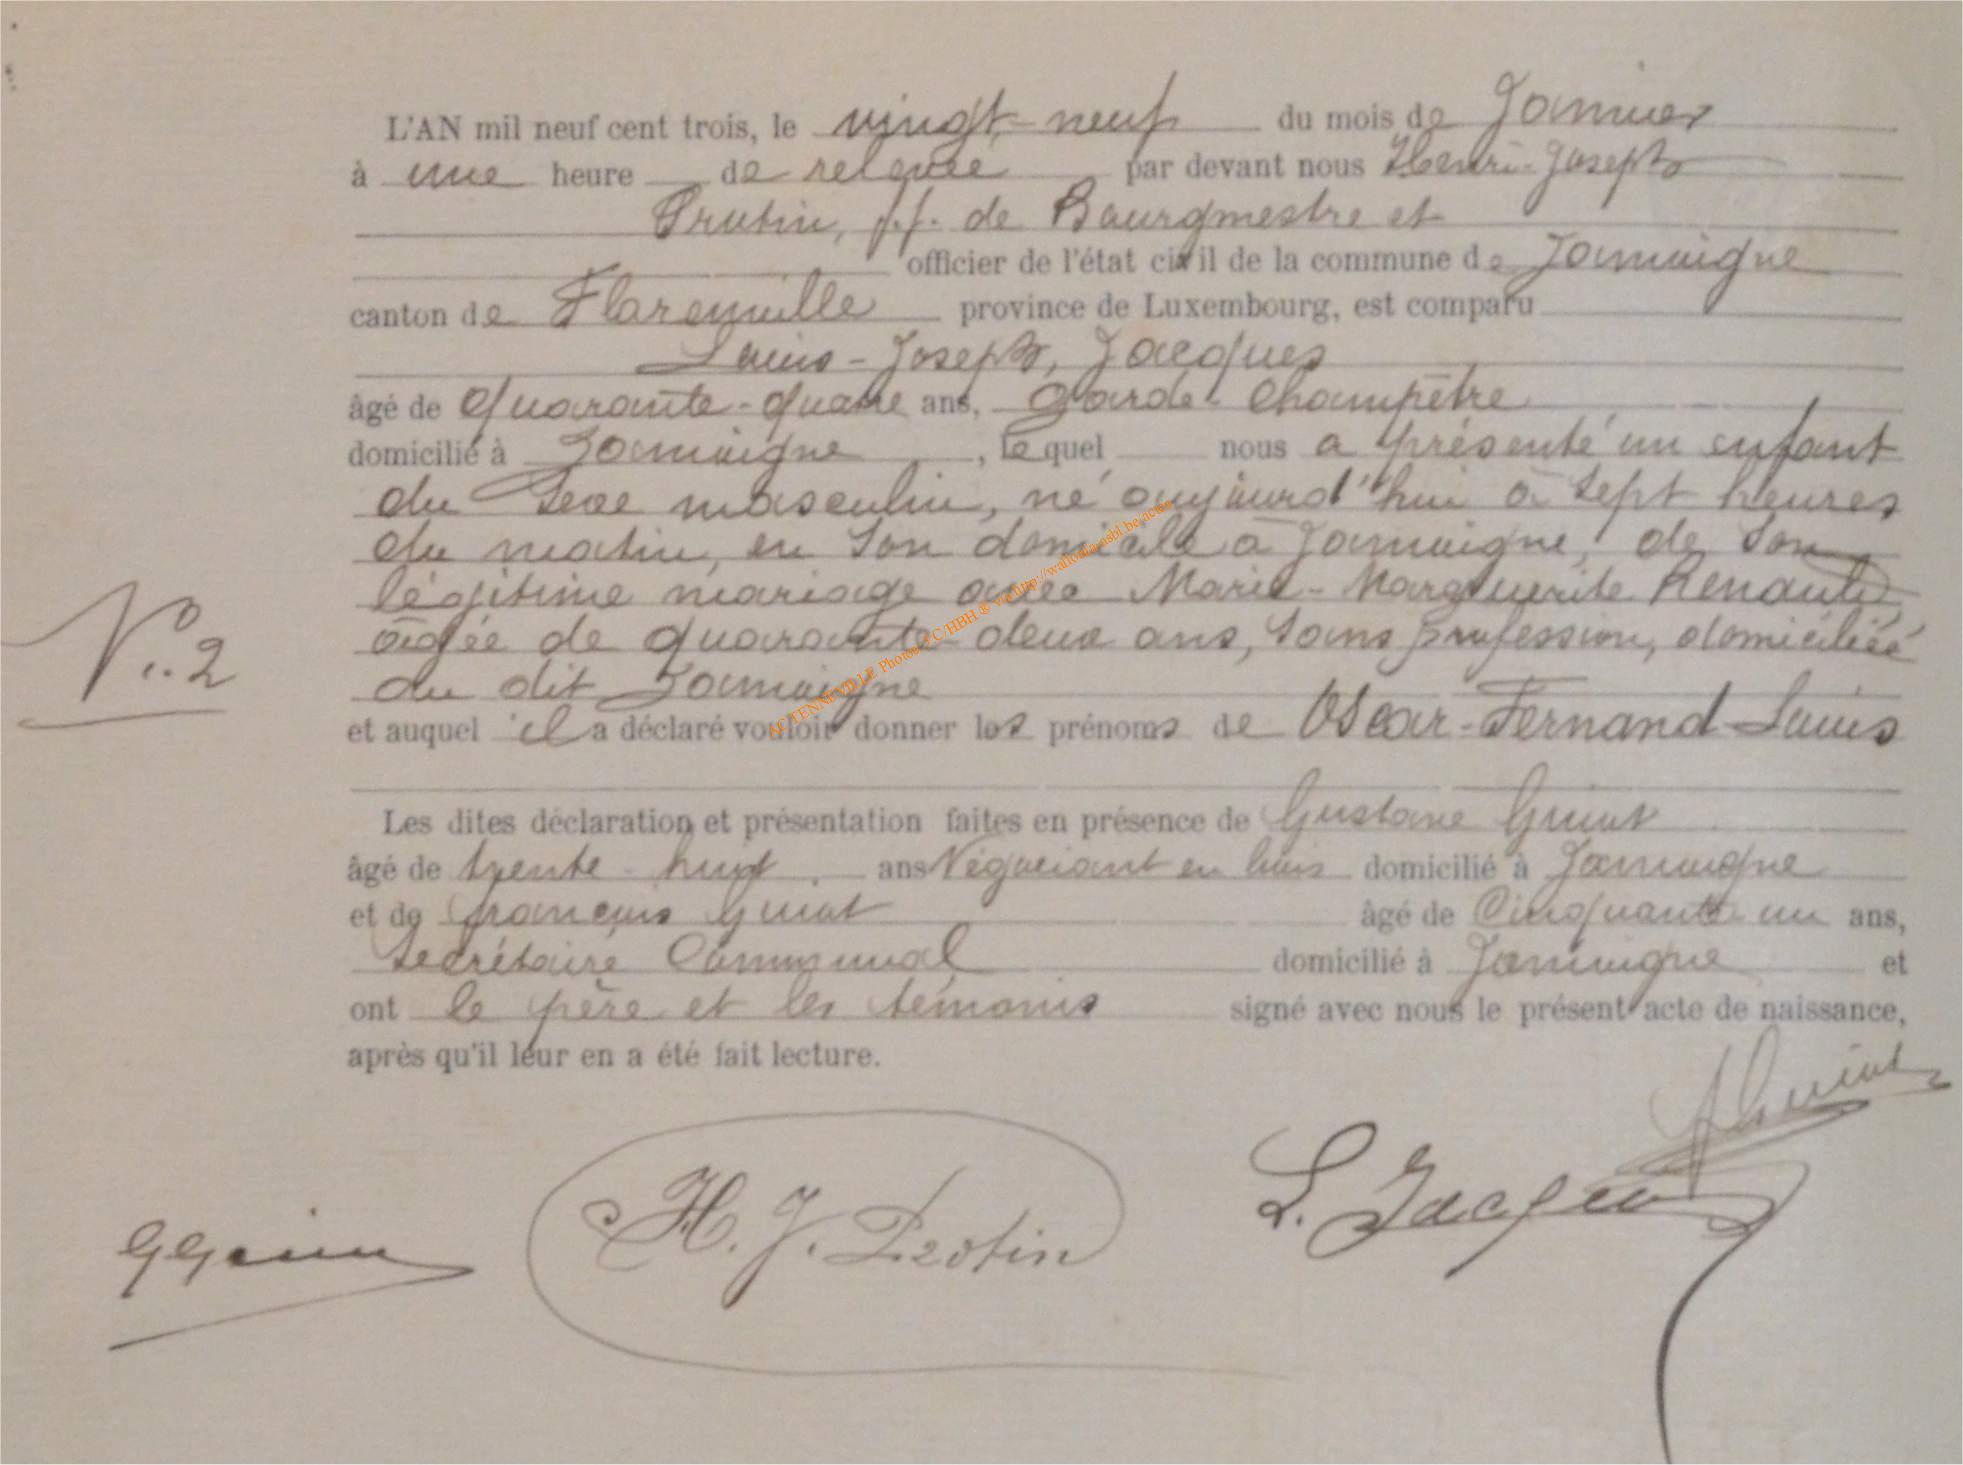 L'AN mil neuf cent trois, le vingt-neuf du mois de Janvier
à une heure de relevée par devant nous Henri-Joseph
Protin, f.f. de Bourgmestre et
officier de l'état civil de la commune de Jamoigne
canton de Florenville province de Luxembourg, est comparu
Louis-Joseph, Jacques
âgé de quarante-quatre ans, Garde Champêtre
domicilié à Jamoigne, lequel nous a présenté un enfant
du sexe masculin, né aujourd'hui à sept heures
du matin, en son domicile à Jamoigne, de son
légitime mariage avec Marie-Marguerite Renauld
âgée de quarante-deux ans, sans profession, domiciliée
au dit Jamoigne
N° 2
et auquel il a déclaré vouloir donner les prénoms de Oscar-Fernand-Louis
Les dites déclaration et présentation faites en présence de Gustave Guiot
âgé de trente-huit ans Négociant en bois domicilié à Jamoigne
et de François Guiot âgé de Cinquante un ans,
Secrétaire Communal domicilié à Jamoigne et
ont le père et les témoins signé avec nous le présent acte de naissance,
après qu'il leur en a été fait lecture.
H. J. Protin
L. Jacques
ACTENNEVILLE Photos EC/HBH ® via http://wallonia-asbl.be.actes